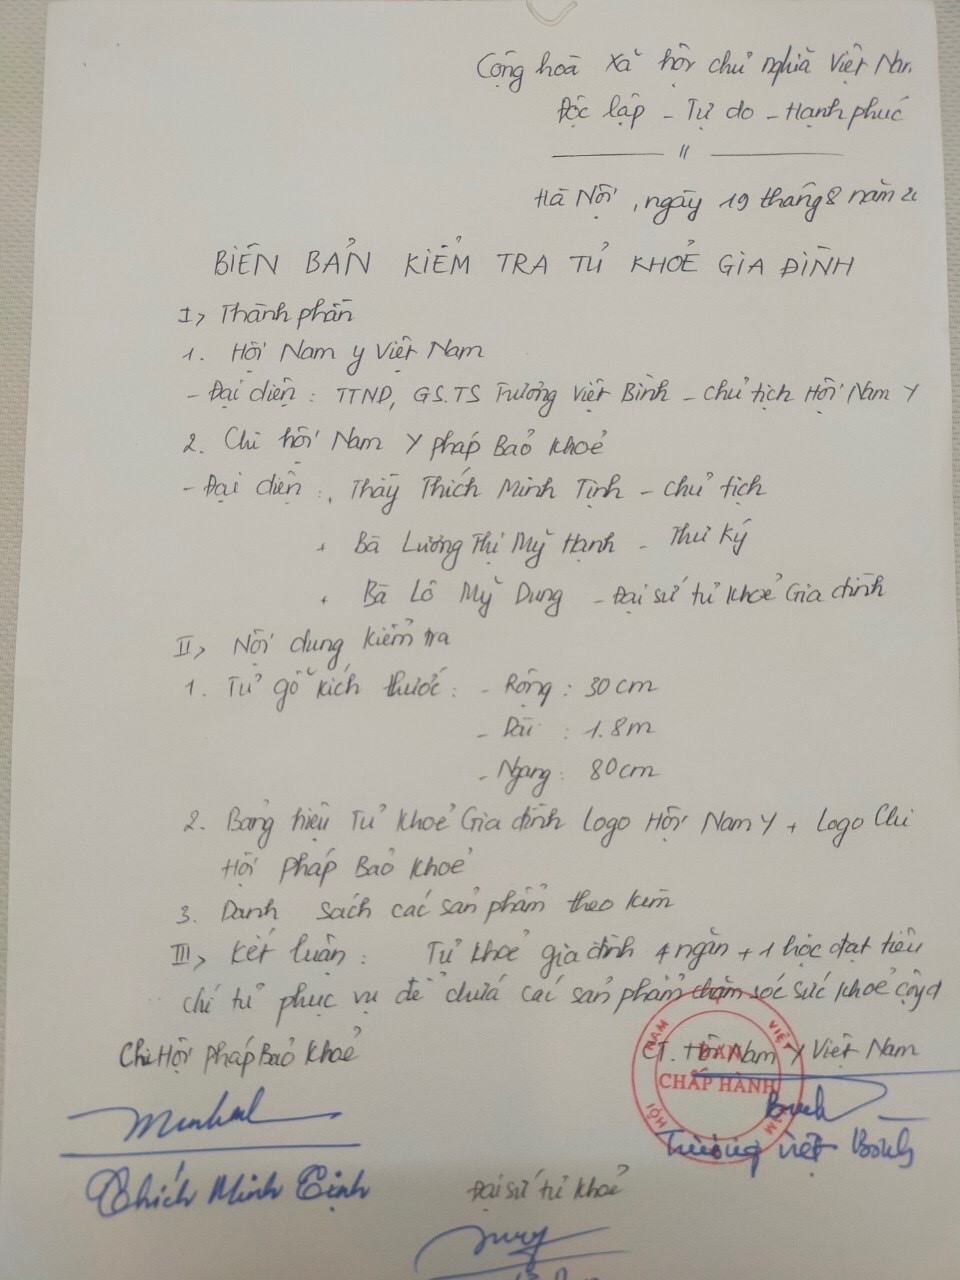 Cộng hoà Xã hội chủ nghĩa Việt Nam
Độc lập - Tự do - Hạnh phúc
Hà Nội, ngày 19 tháng 8 năm 20
BIÊN BẢN KIỂM TRA TỦ KHOẺ GIA ĐÌNH
I, Thành phần
1. Hội Nam y Việt Nam
- Đại diện : TTND, GS.TS Trương Việt Bình - chủ tịch Hội Nam Y
2. Chi hội Nam Y pháp Bảo Khoẻ
- Đại diện : Thầy Thích Minh Tịnh - chủ tịch
+ Bà Lương Thị Mỹ Hạnh - Thư ký
+ Bà Lô Mỹ Dung - Đại sứ tủ khoẻ Gia đình
II, Nội dung kiểm tra
1. Tủ gỗ kích thước : - Rộng : 30 cm
- Dài : 1.8m
- Ngang : 80cm
2. Bảng hiệu Tủ khoẻ Gia đình Logo Hội Nam Y + Logo Chi
Hội Pháp Bảo khoẻ
3. Danh sách các sản phẩm theo kèm
III, Kết luận : Tủ khoẻ gia đình 4 ngăn + 1 hộc đạt tiêu
chí tủ phục vụ để chứa các sản phẩm chăm sóc sức khoẻ
Chi Hội Pháp Bảo Khoẻ
CT. Hội Nam Y Việt Nam
HỘI NAM Y VIỆT NAM
BAN
CHẤP HÀNH
Trương Việt Bình
Thích Minh Tịnh
Đại sứ tủ khoẻ